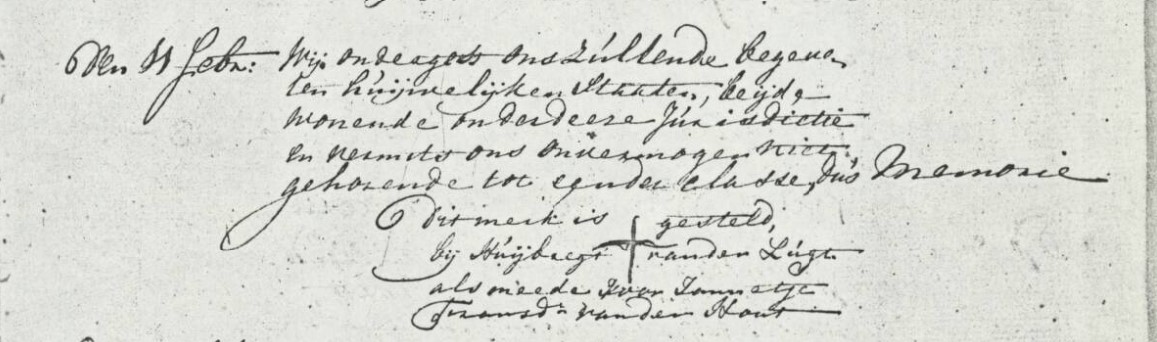 Den 11 Febr: Wij onderges ons zúllende begeven
ten húijwelijken Staaten, beijde
wonende onder deeze Júrisdictie
en vermits ons onvermogen niet
gehorende tot eender classe, dús Memorie
Dit merk is gesteld,
bij Húijbregt vanden Lúgt
als meede voor Jannetje
Fransd. vanden Hout